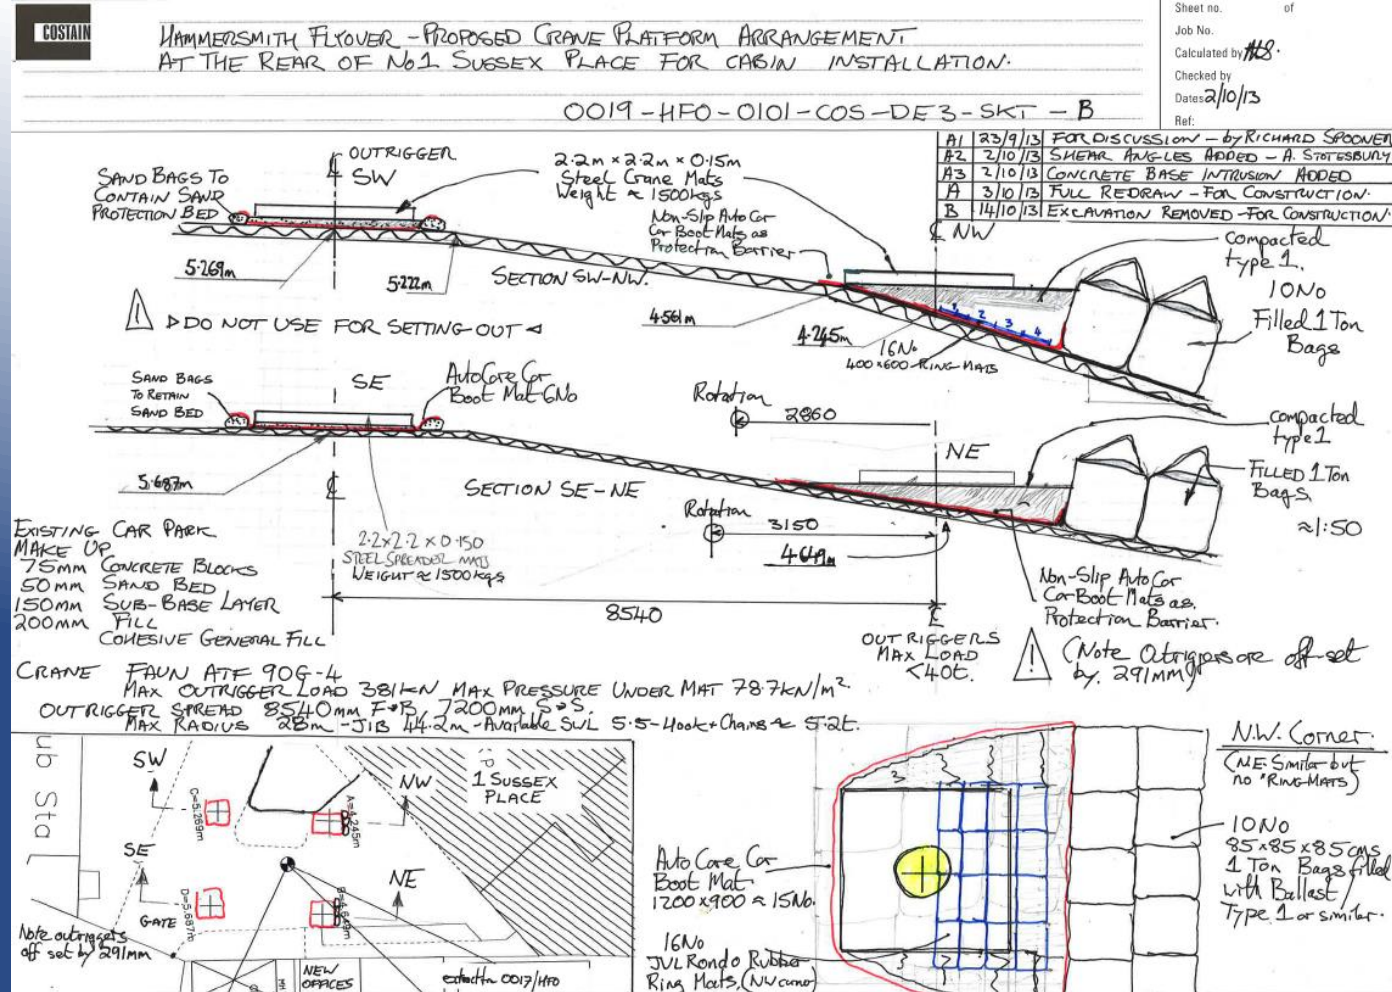 COSTAIN
HAMMERSMITH FLYOVER - PROPOSED CRANE PLATFORM ARRANGEMENT
AT THE REAR OF No1 SUSSEX PLACE FOR CABIN INSTALLATION.
0019-HFO-0101-COS-DE3-SKT-B
Sheet no. of
Job No.
Calculated by
Checked by
Dates 2/10/13
Ref:
A1 23/9/13 FOR DISCUSSION - by RICHARD SPOONER
A2 2/10/13 SHEAR ANGLES ADDED - A. STOTESBURY
A3 2/10/13 CONCRETE BASE INTRUSION ADDED
A 3/10/13 FULL REDRAW - FOR CONSTRUCTION.
B 14/10/13 EXCAVATION REMOVED - FOR CONSTRUCTION.
SAND BAGS TO
CONTAIN SAND
PROTECTION BED
OUTRIGGER
SW
2.2m × 2.2m × 0.15m
Steel Crane Mats
Weight ≈ 1500kgs
Non-Slip Auto Car
Car Boot Mats as
Protection Barrier
NW
Compacted
type 1.
10No
Filled 1 Ton
Bags
5.269m
5.222m
SECTION SW-NW.
4.561m
4.245m
1 2 3 4
16No
400×600 RING MATS
DO NOT USE FOR SETTING OUT
SAND BAGS
TO RETAIN
SAND BED
SE
AutoCare Car
Boot Mat 6No
Rotation
2860
NE
compacted
type 1
FILLED 1 Ton
Bags,
≈1:50
5.687m
SECTION SE-NE
Rotation
3150
4.649m
2.2×2.2×0.150
STEEL SPREADER MATS
WEIGHT ≈ 1500kgs
Non-Slip Auto Car
Car Boot Mats as
Protection Barrier.
EXISTING CAR PARK
MAKE UP
75MM CONCRETE BLOCKS
50MM SAND BED
150MM SUB-BASE LAYER
200MM FILL
COHESIVE GENERAL FILL
8540
OUTRIGGERS
MAX LOAD
<40t.
(Note Outriggers are off-set
by. 291mm)
CRANE FAUN ATF 90G-4
MAX OUTRIGGER LOAD 381kN MAX PRESSURE UNDER MAT 78.7kN/m².
OUTRIGGER SPREAD 8540mm F-B, 7200mm S-S.
MAX RADIUS 28m - JIB 44.2m - Available SWL 5.5 - Hook + Chains ≈ 5.2t.
ub Sta
SW
C=5.269m
A=4.245m
NW
1 SUSSEX
PLACE
SE
D=5.687m
GATE
NE
Note outriggers
off set by 291mm
NEW
OFFICES
0017/HFO
N.W. Corner.
(N.E. Similar but
no "RING MATS)
3
10No
85×85×85cms
1 Ton Bags filled
with Ballast/
Type 1 or similar.
Auto Care Car
Boot Mat
1200×900 ≈ 15No.
16No
JVL Rondo Rubber
Ring Mats,